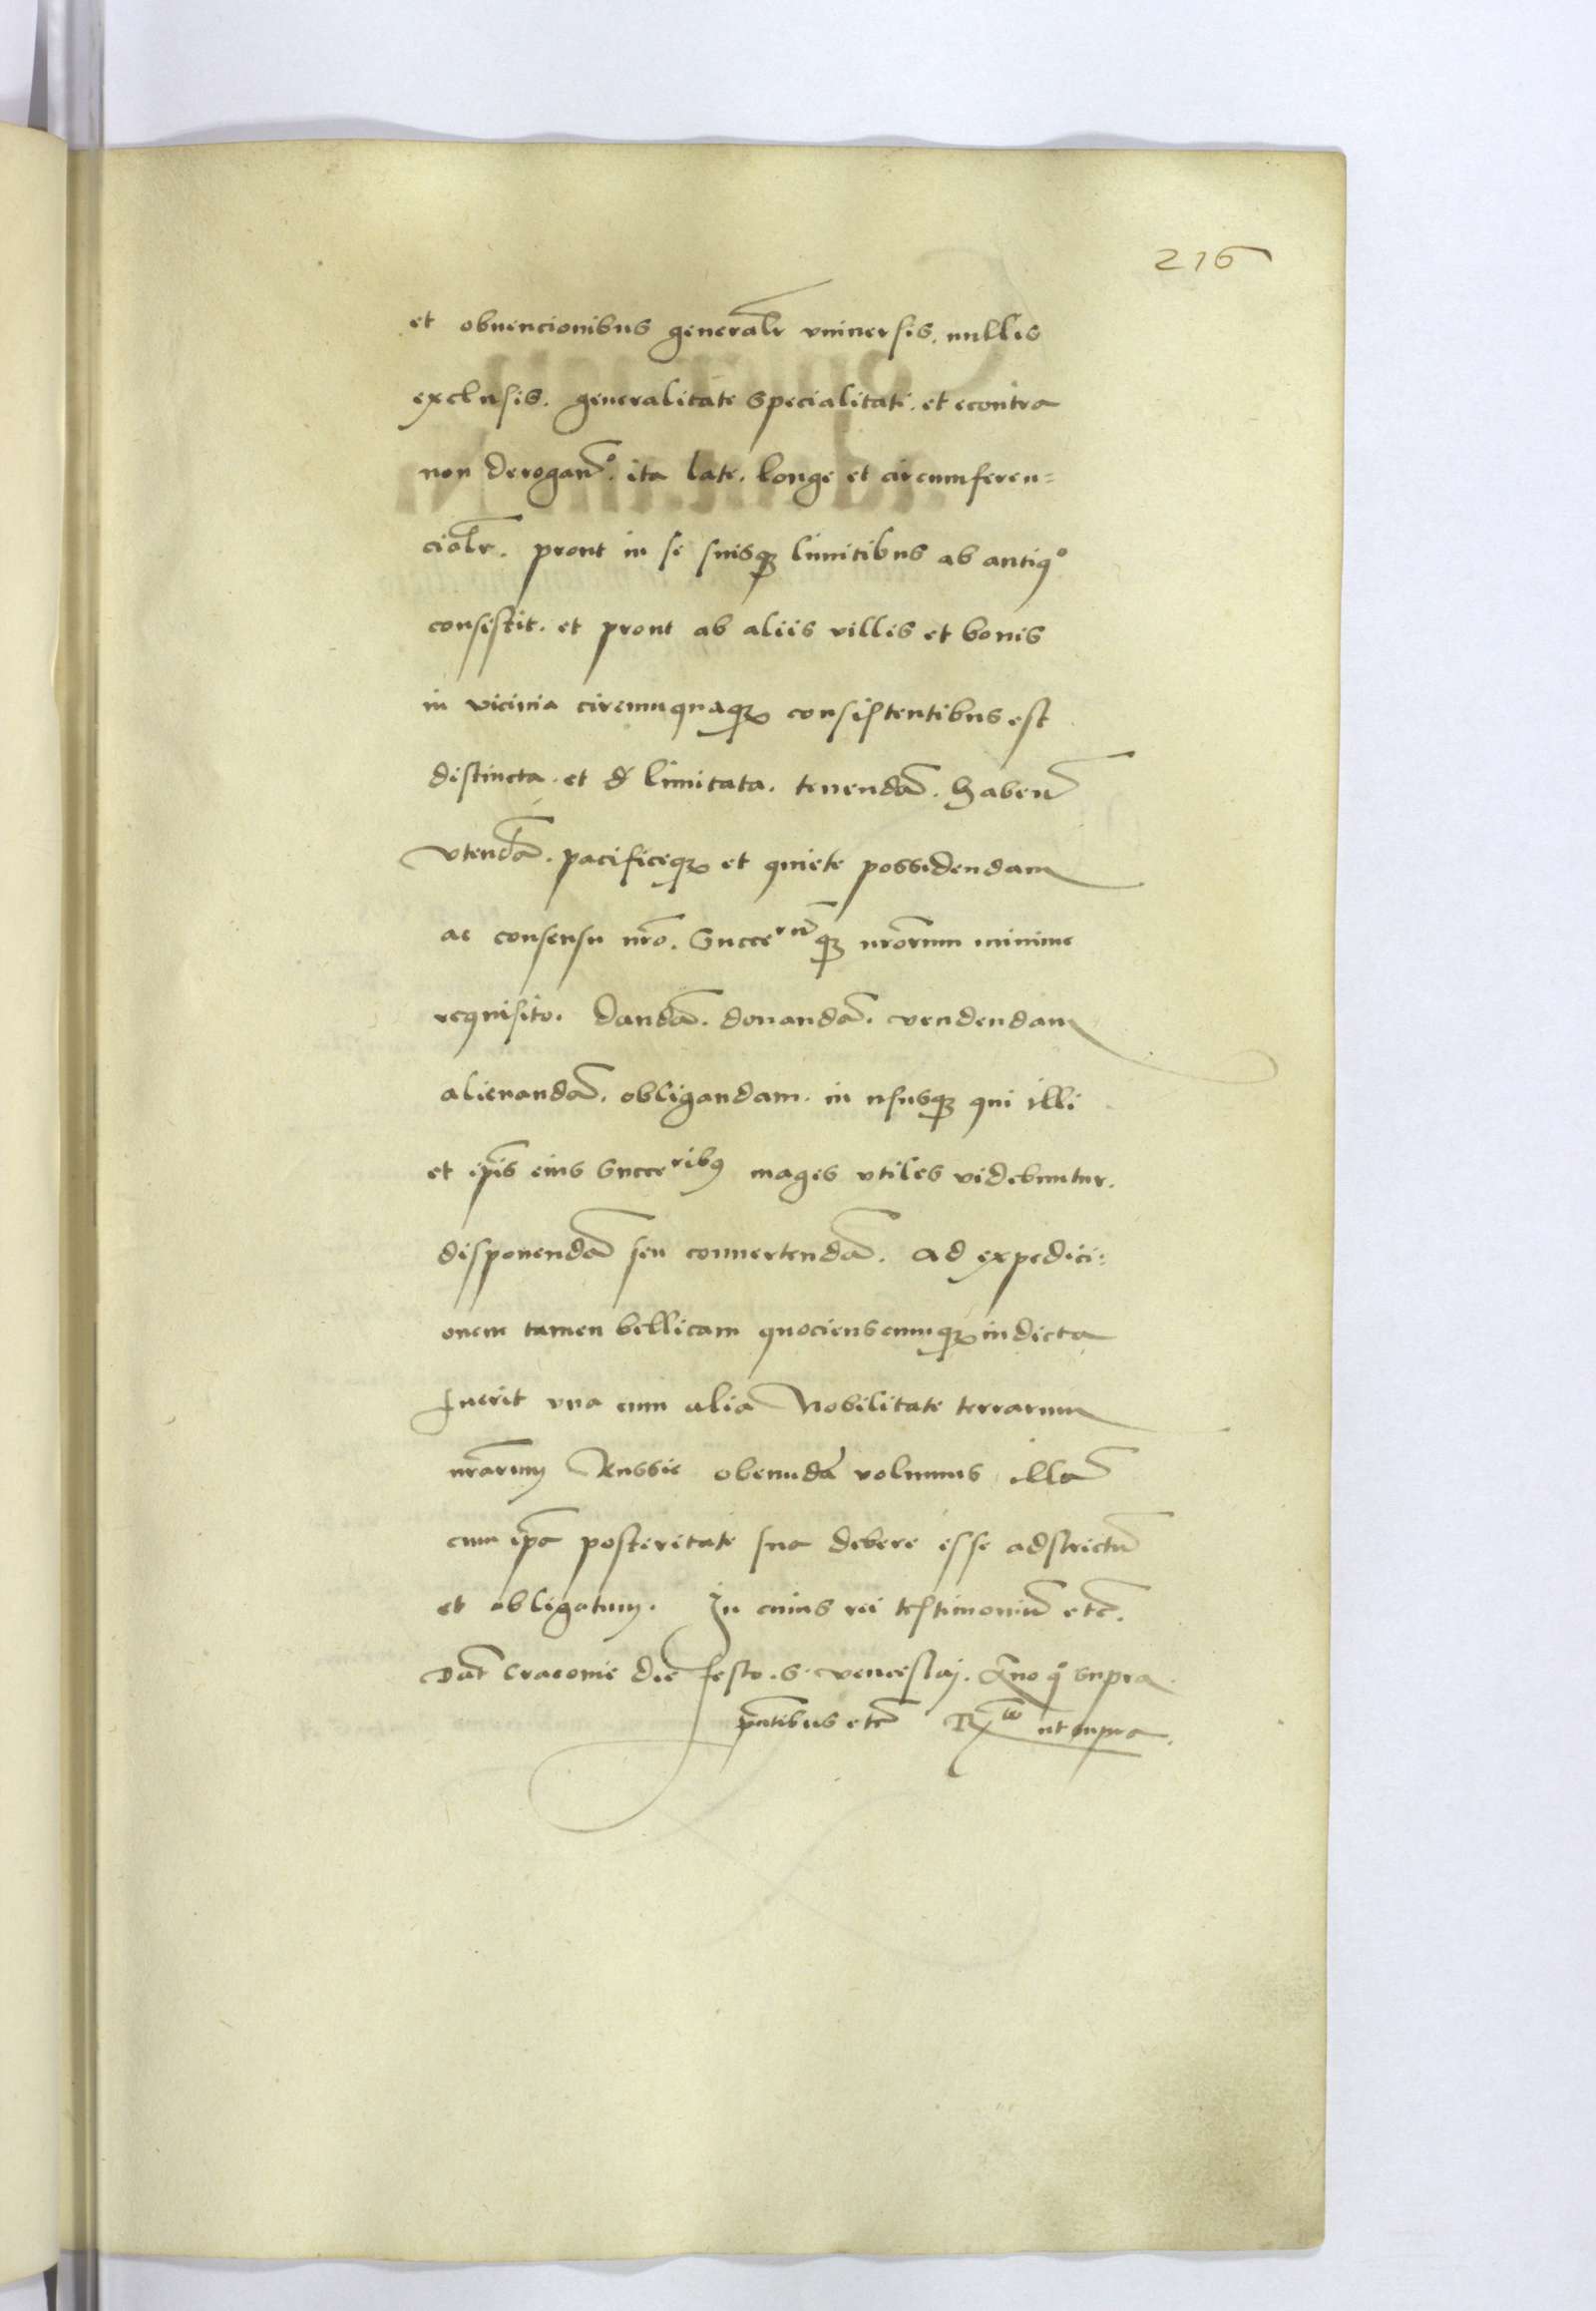 216
et obuencionibus generalr vniuersis. nullis
exclusis. generalitate specialitati. et econtra
non derogand̄o. ita late. longe et circumferen=
cialr. prout in se suisqꝫ limitibus ab antiqͦ
consistit. et prout ab aliis villis et bonis
in vicinia circumquaqꝫ consistentibus est
distincta. et d limitata. tenendā. haben̄
vtendā. pacificeqꝫ et quiete possidendam
ac consensu nr̄o. Succerū qꝫ nr̄orum minime
requisito. dandā. donandā. vendendam
alienandā. obligandam. in ususqꝫ qui illi
et ip̄is eius Succeribꝰ magis vtiles videbuntur.
disponendā seu conuertendā. ad expedici=
onem tamen bellicam quocienscumqꝫ indicta
fuerit vna cum alia Nobilitate terrarum
nr̄arum Russie obeundā volumus illā
cum ip̄a posteritate sua debere esse adstrictū
et obligatum. In cuius rei testimoniū etc̄.
Dat̄ Cracouie die festo. S. Venceslaj. Anno q̄ supra
pn̄tibus etc̄ Rx̄ ut supra.